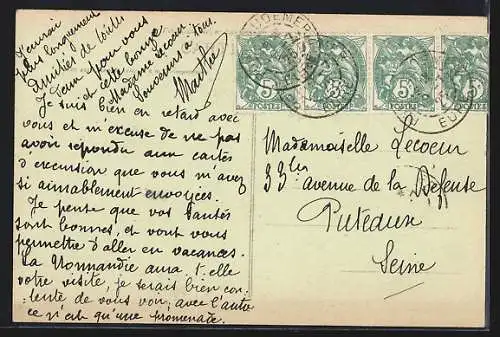 J'enverrai
plus longuement
Amitiés de toutes
Jean pour vous
et cette bonne
Madame Lecoeur
Souvenirs à tous.
Marthe
Je suis bien en retard avec
vous et m'excuse de ne pas
avoir répondu aux cartes
d'excursion que vous m'avez
si aimablement envoyées.
Je pense que vos santés
sont bonnes, et vont vous
permettre d'aller en vacances.
La Normandie aura-t-elle
votre visite, je serais bien con-
tente de vous voir; avec l'auto
ce n'est qu'une promenade.
5 5 5 5
POSTES POSTES POSTES
EURE
Mademoiselle Lecoeur
33 bis avenue de la Défense
Puteaux
Seine